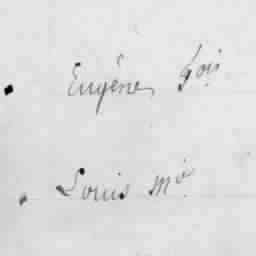 Eugène, fois
Louis Mie